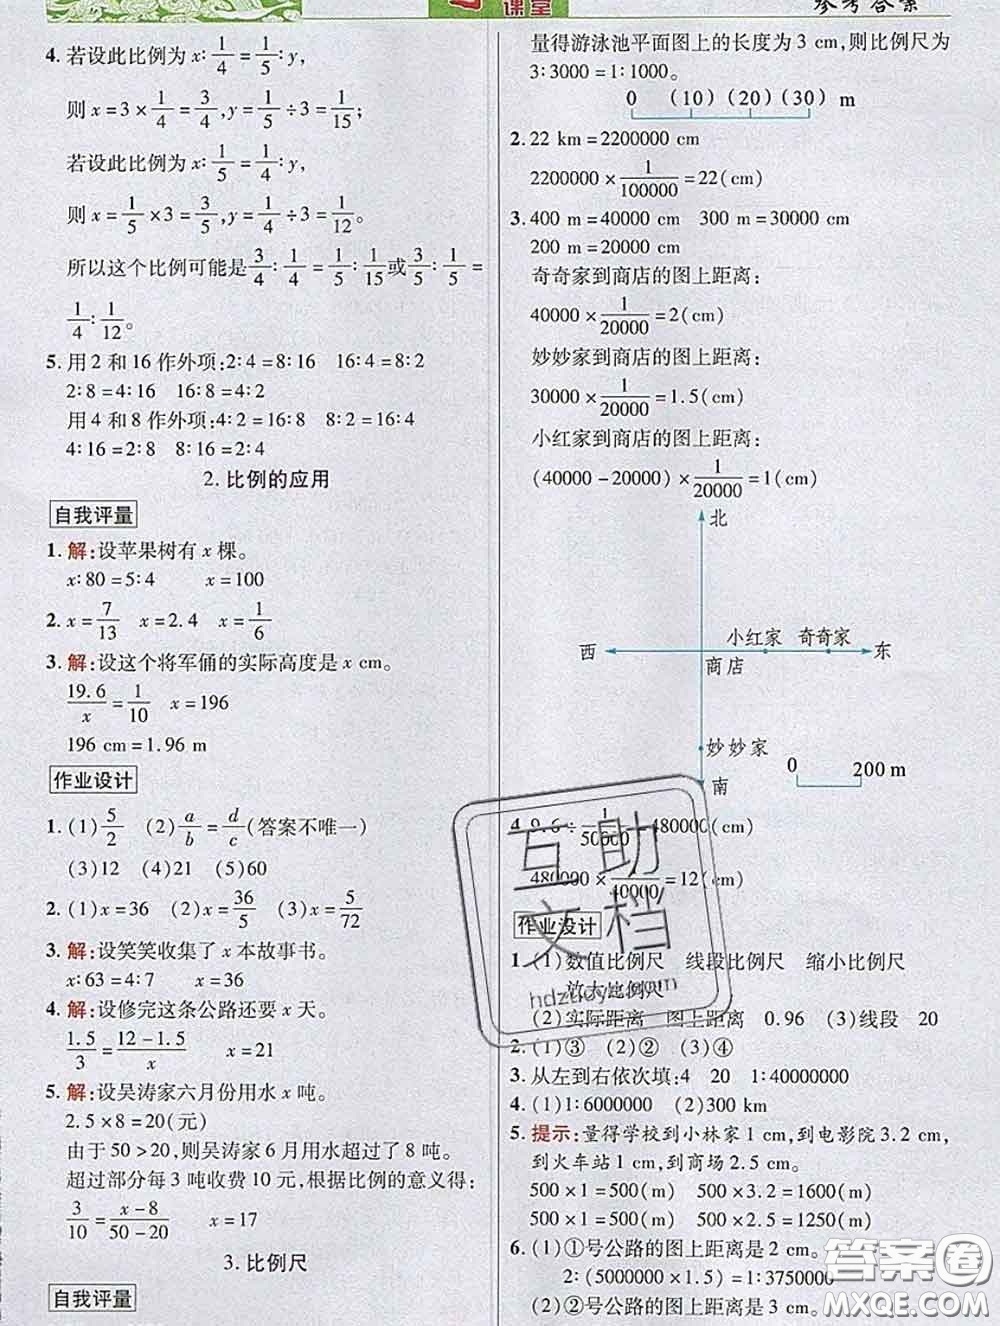 课堂
参考答案
4. 若设此比例为 x∶1/4=1/5∶y,
则 x=3×1/4=3/4,y=1/5÷3=1/15;
若设此比例为 x∶1/5=1/4∶y,
则 x=1/5×3=3/5,y=1/4÷3=1/12。
所以这个比例可能是3/4∶1/4=1/5∶1/15或3/5∶1/5=
1/4∶1/12。
5. 用 2 和 16 作外项:2∶4=8∶16 16∶4=8∶2
2∶8=4∶16 16∶8=4∶2
用 4 和 8 作外项:4∶2=16∶8 8∶2=16∶4
4∶16=2∶8 8∶16=2∶4
2. 比例的应用
自我评量
1. 解:设苹果树有 x 棵。
x∶80=5∶4 x=100
2. x=7/13 x=2.4 x=1/6
3. 解:设这个将军俑的实际高度是 x cm。
19.6/x=1/10 x=196
196 cm=1.96 m
作业设计
1. (1)5/2 (2)a/b=d/c(答案不唯一)
(3)12 (4)21 (5)60
2. (1)x=36 (2)x=36/5 (3)x=5/72
3. 解:设笑笑收集了 x 本故事书。
x∶63=4∶7 x=36
4. 解:设修完这条公路还要 x 天。
1.5/3=12-1.5/x x=21
5. 解:设吴涛家六月份用水 x 吨。
2.5×8=20(元)
由于 50>20,则吴涛家 6 月用水超过了 8 吨。
超过部分每 3 吨收费 10 元,根据比例的意义得:
3/10=x-8/50-20 x=17
3. 比例尺
自我评量
量得游泳池平面图上的长度为 3 cm,则比例尺为
3∶3000=1∶1000。
0 (10) (20) (30) m
2. 22 km=2200000 cm
2200000×1/100000=22(cm)
3. 400 m=40000 cm 300 m=30000 cm
200 m=20000 cm
奇奇家到商店的图上距离:
40000×1/20000=2(cm)
妙妙家到商店的图上距离:
30000×1/20000=1.5(cm)
小红家到商店的图上距离:
(40000-20000)×1/20000=1(cm)
北
小红家 奇奇家
西 商店 东
妙妙家
南
0 200 m
4. 9.6÷1/50000=480000(cm)
480000×1/40000=12(cm)
作业设计
1. (1)数值比例尺 线段比例尺 缩小比例尺
放大比例尺
(2)实际距离 图上距离 0.96 (3)线段 20
2. (1)③ (2)② (3)④
3. 从左到右依次填:4 20 1∶40000000
4. (1)1∶6000000 (2)300 km
5. 提示:量得学校到小林家 1 cm,到电影院 3.2 cm,
到火车站 1 cm,到商场 2.5 cm。
500×1=500(m) 500×3.2=1600(m)
500×1=500(m) 500×2.5=1250(m)
6. (1)①号公路的图上距离是 2 cm。
2∶(5000000×1.5)=1∶3750000
(2)②号公路的图上距离是 3 cm。
互助文档
答案圈
MXQE.COM